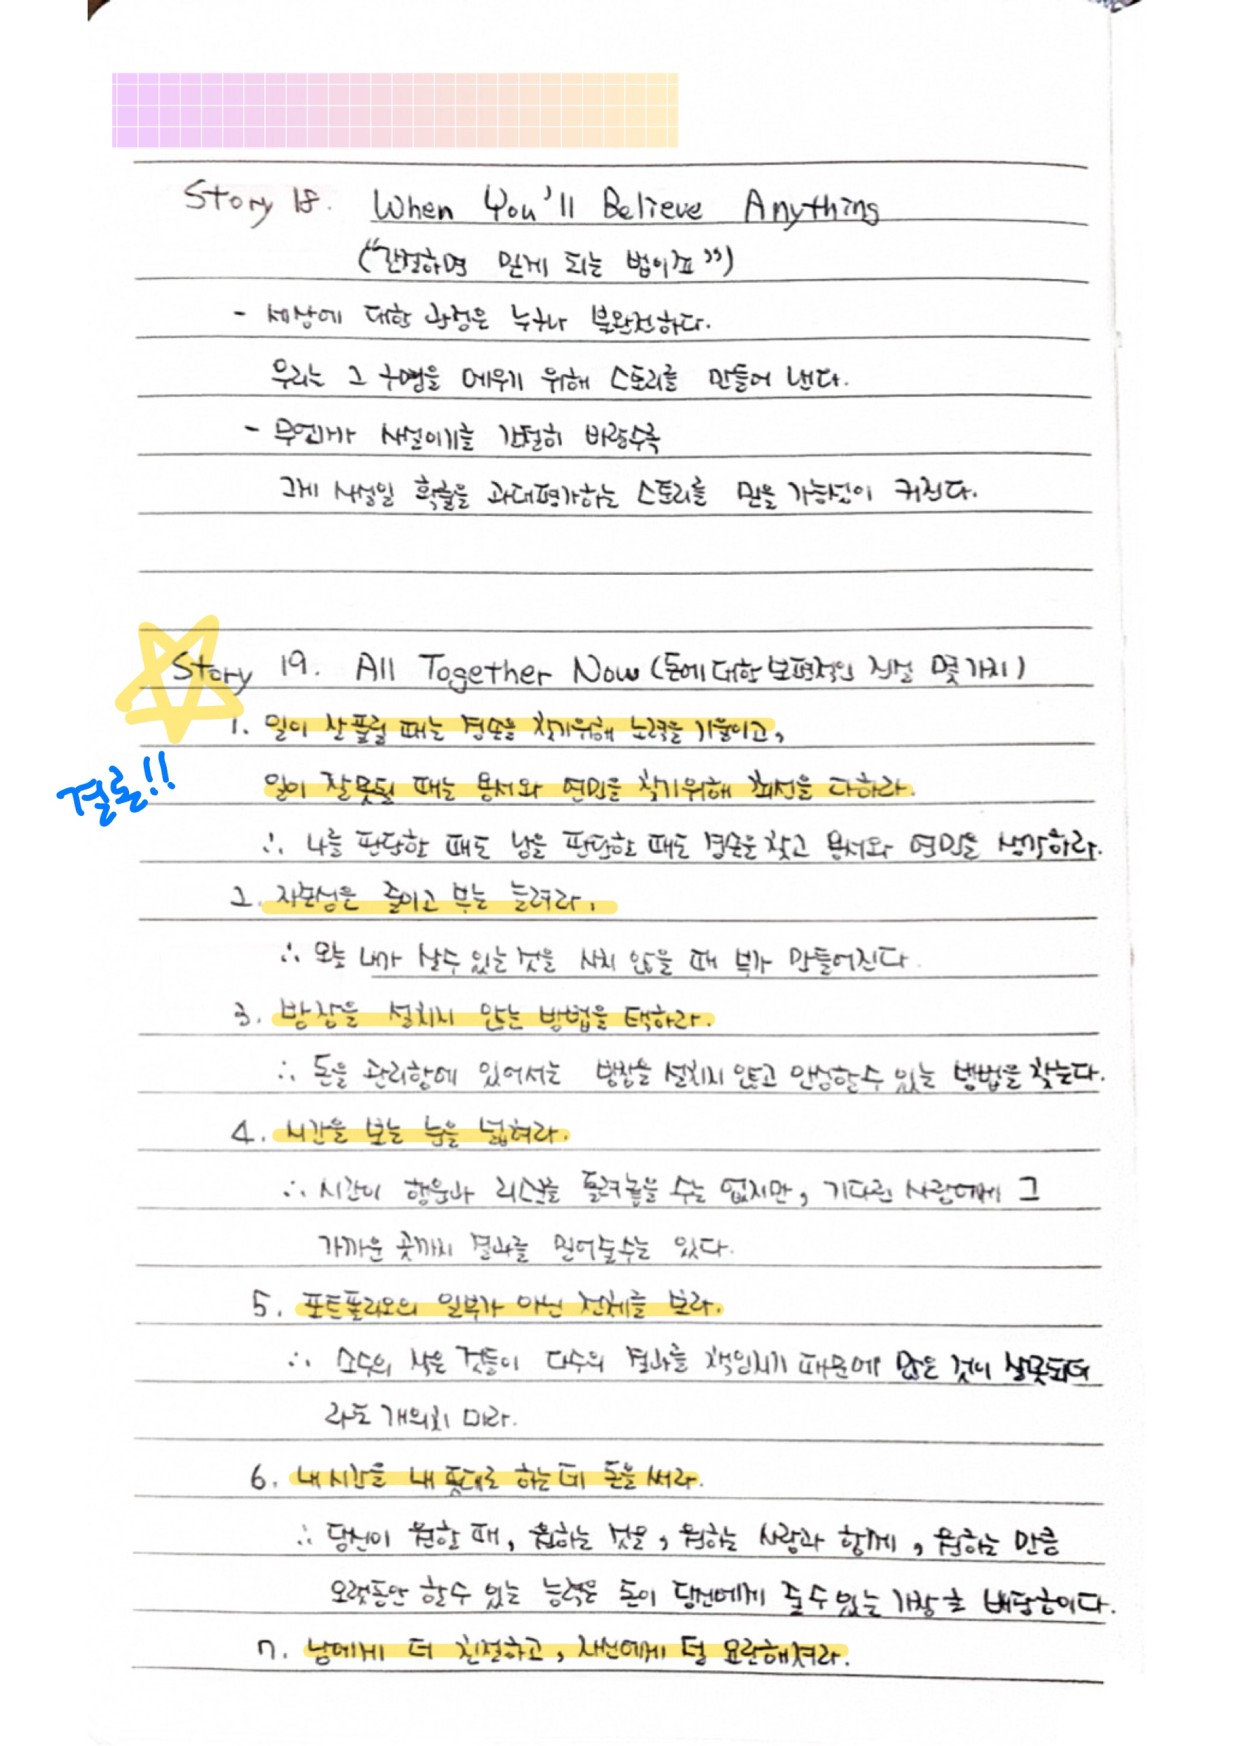 Story 18. When You'll Believe Anything
("간절하면 믿게 되는 법이죠")
- 세상에 대한 관점은 누구나 불완전하다.
우리는 그 구멍을 메우기 위해 스토리를 만들어 낸다.
- 무언가가 사실이기를 간절히 바랄수록
그게 사실일 확률을 과대평가하는 스토리를 믿을 가능성이 커진다.
Story 19. All Together Now (돈에 대한 보편적인 진실 몇가지)
1. 일이 잘 풀릴 때는 겸손을 찾기위해 노력을 기울이고,
결론!!
일이 잘못될 때는 용서와 연민을 찾기위해 최선을 다하라.
∴ 나를 판단할 때도 남을 판단할 때도 겸손을 찾고 용서와 연민을 생각하라.
2. 자존심은 줄이고 부는 늘려라.
∴ 오늘 내가 살수 있는 것을 사지 않을 때 부가 만들어진다.
3. 밤잠을 설치지 않는 방법을 택하라.
∴ 돈을 관리함에 있어서는 밤잠을 설치지 않고 안심할수 있는 방법을 찾는다.
4. 시간을 보는 눈을 넓혀라.
∴ 시간이 행운과 리스크를 돌려놓을 수는 없지만, 기다린 사람에게 그
가까운 곳까지 결과를 밀어줄수는 있다.
5. 포트폴리오의 일부가 아닌 전체를 보라.
∴ 소수의 작은 것들이 다수의 결과를 책임지기 때문에 많은 것이 잘못되더
라도 개의치 마라.
6. 내 시간을 내 뜻대로 하는데 돈을 써라.
∴ 당신이 원할 때, 원하는 것을, 원하는 사람과 함께, 원하는 만큼
오랫동안 할수 있는 능력은 돈이 당신에게 줄수있는 가장 큰 배당금이다.
7. 남에게 더 친절하고, 자신에게 덜 요란해져라.